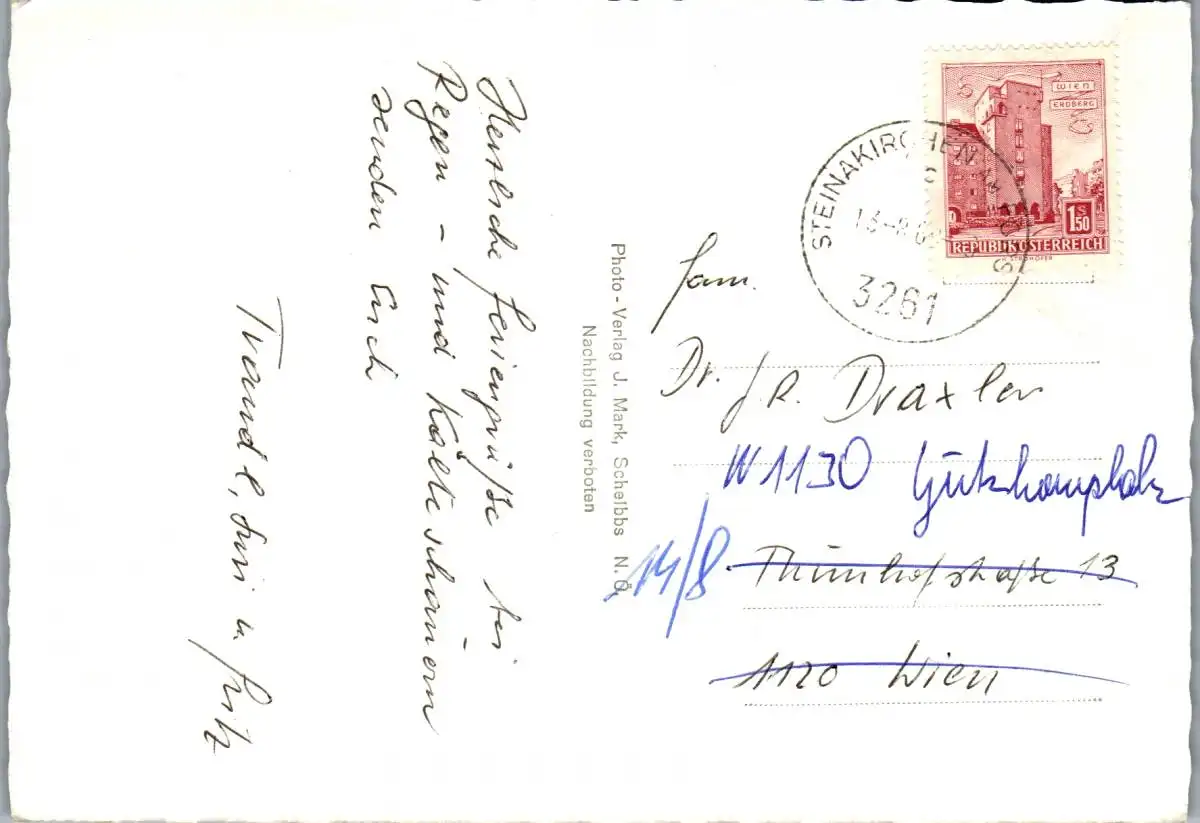 Herzliche Feriengrüße bei
Regen - und Kälteschauern
senden Euch
Traudl, Susi u Fritz
Photo-Verlag J. Mark, Scheibbs N. Ö.
Nachbildung verboten
WIEN
ERDBERG
1 S 50
REPUBLIK ÖSTERREICH
STEINAKIRCHEN
3261
Fam.
Dr. J. R. Draxler
W 1130
14/8 Thunhofstraße 13
1120 Wien